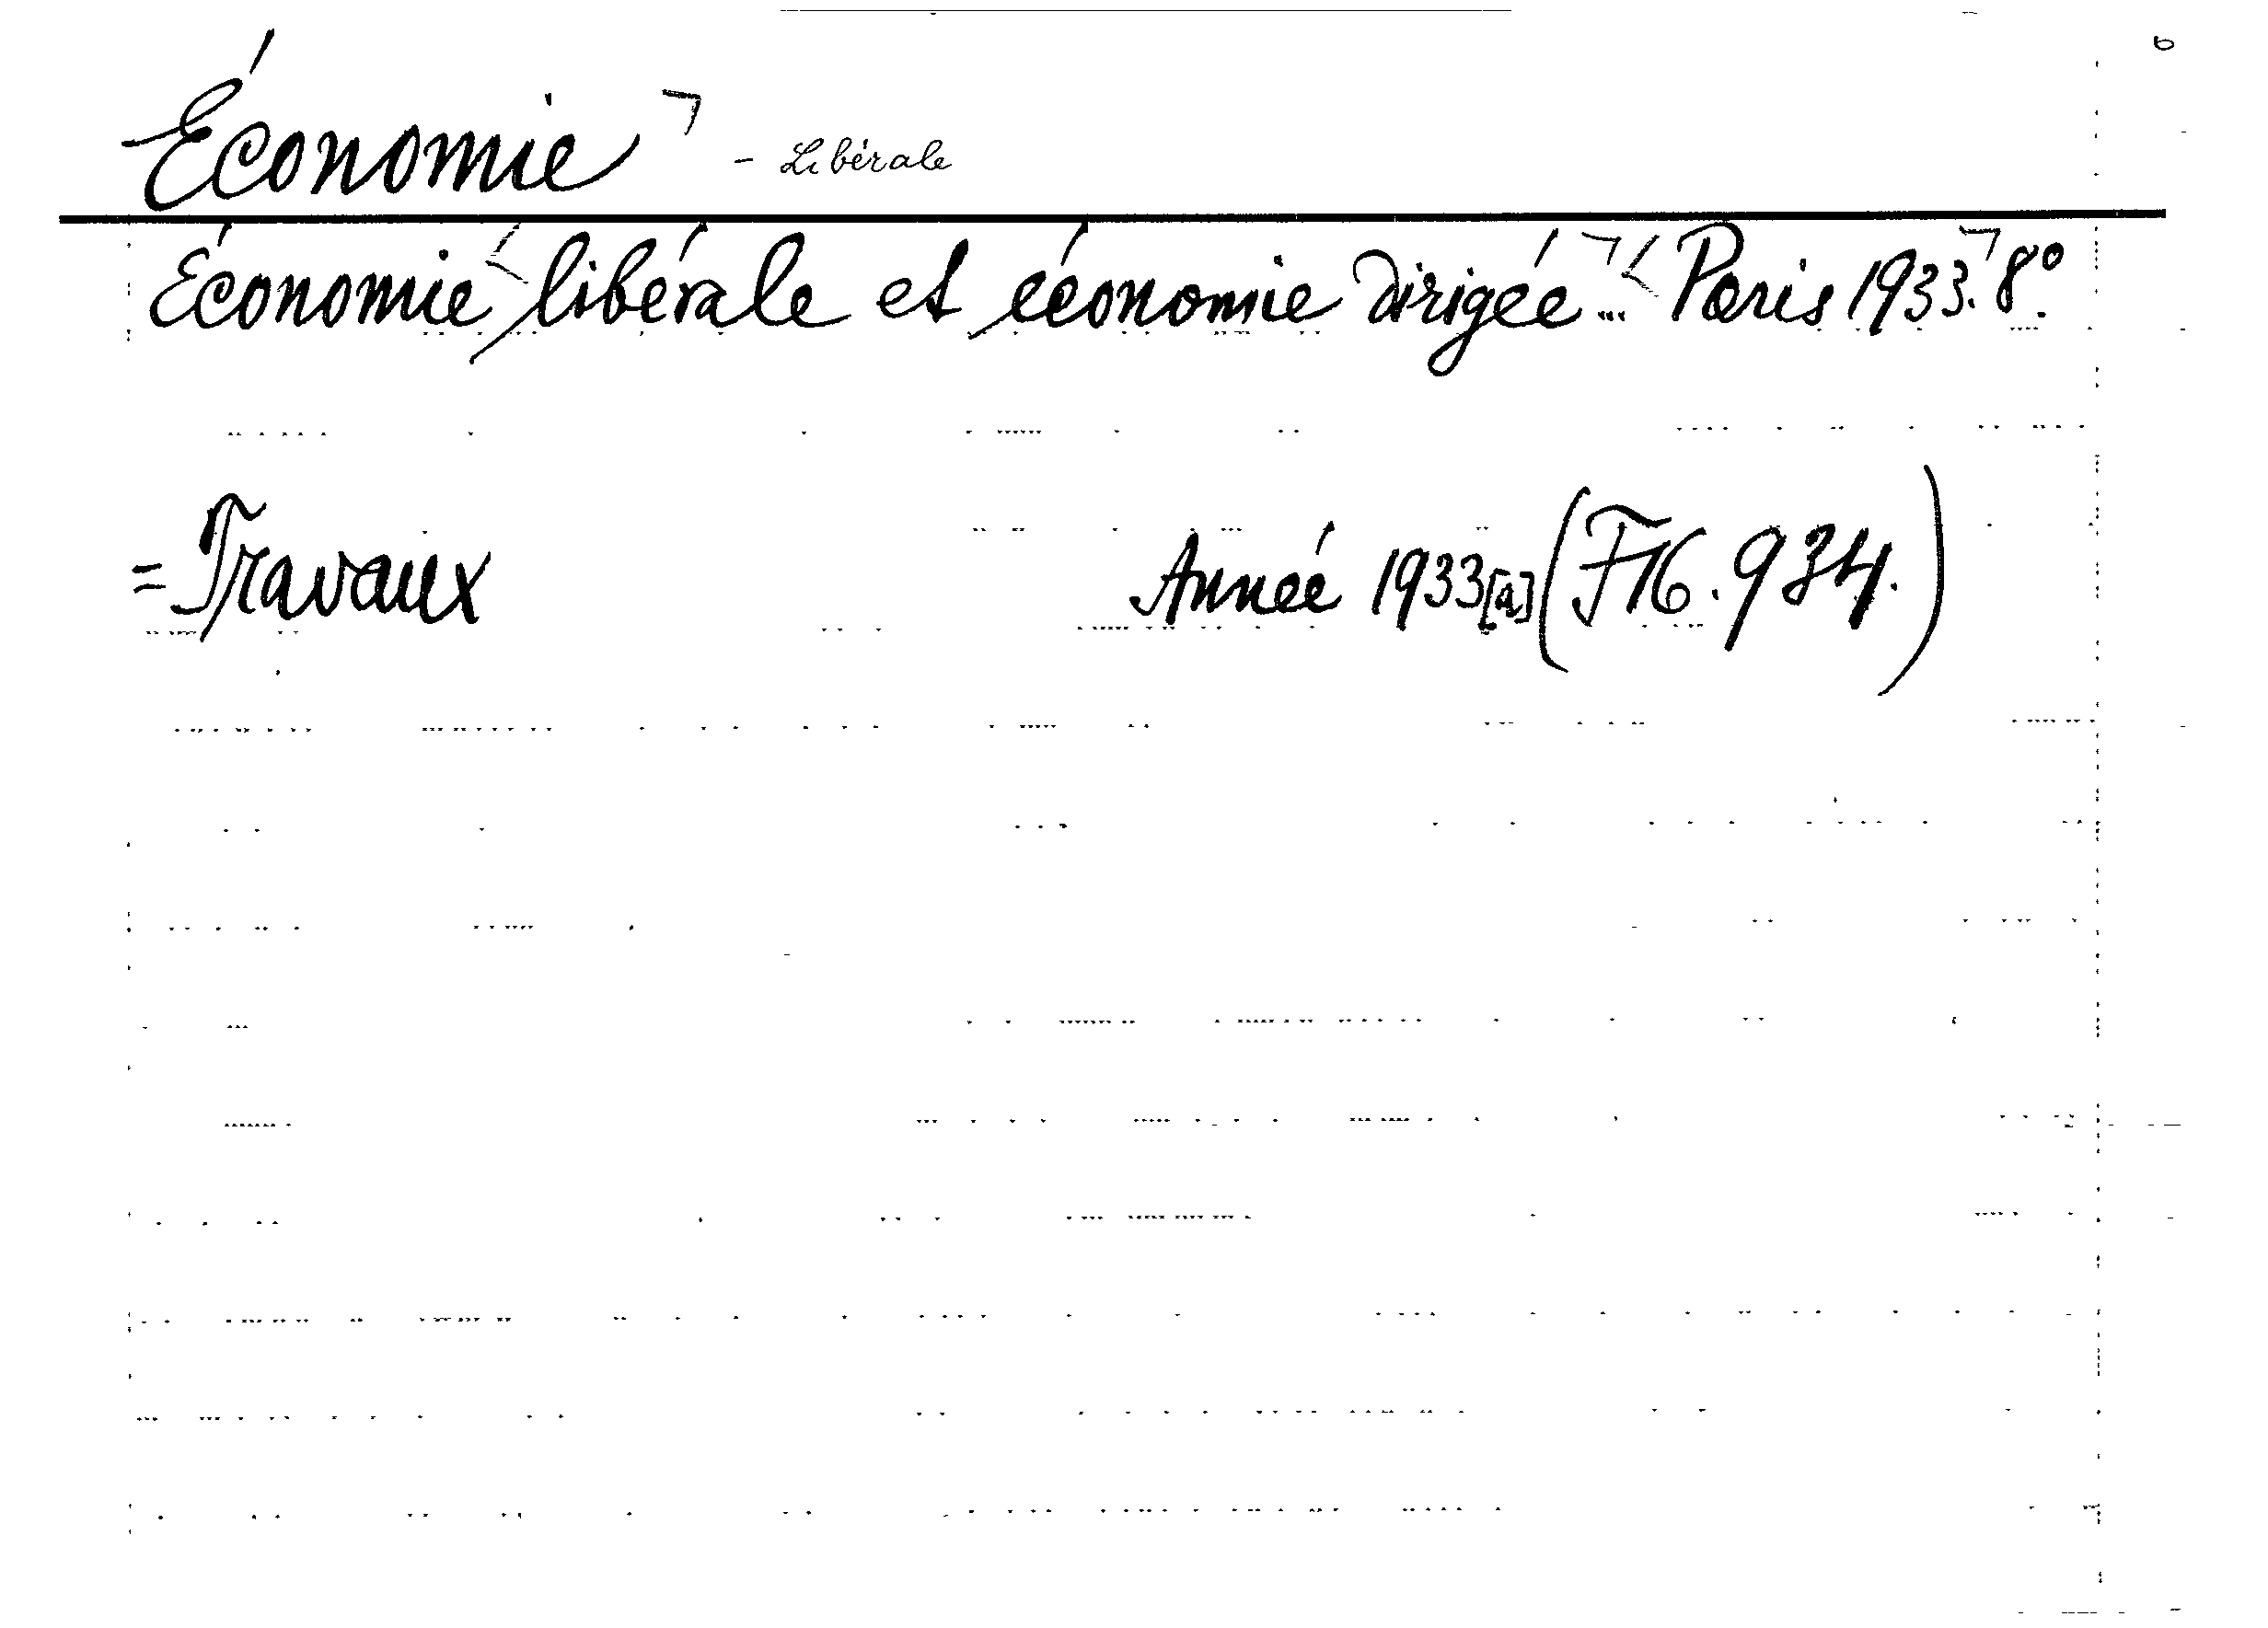 Économie - Libérale
Économie libérale et économie dirigée... Paris 1933. 8º.
= Travaux Année 1933 [a] (F16.934.)